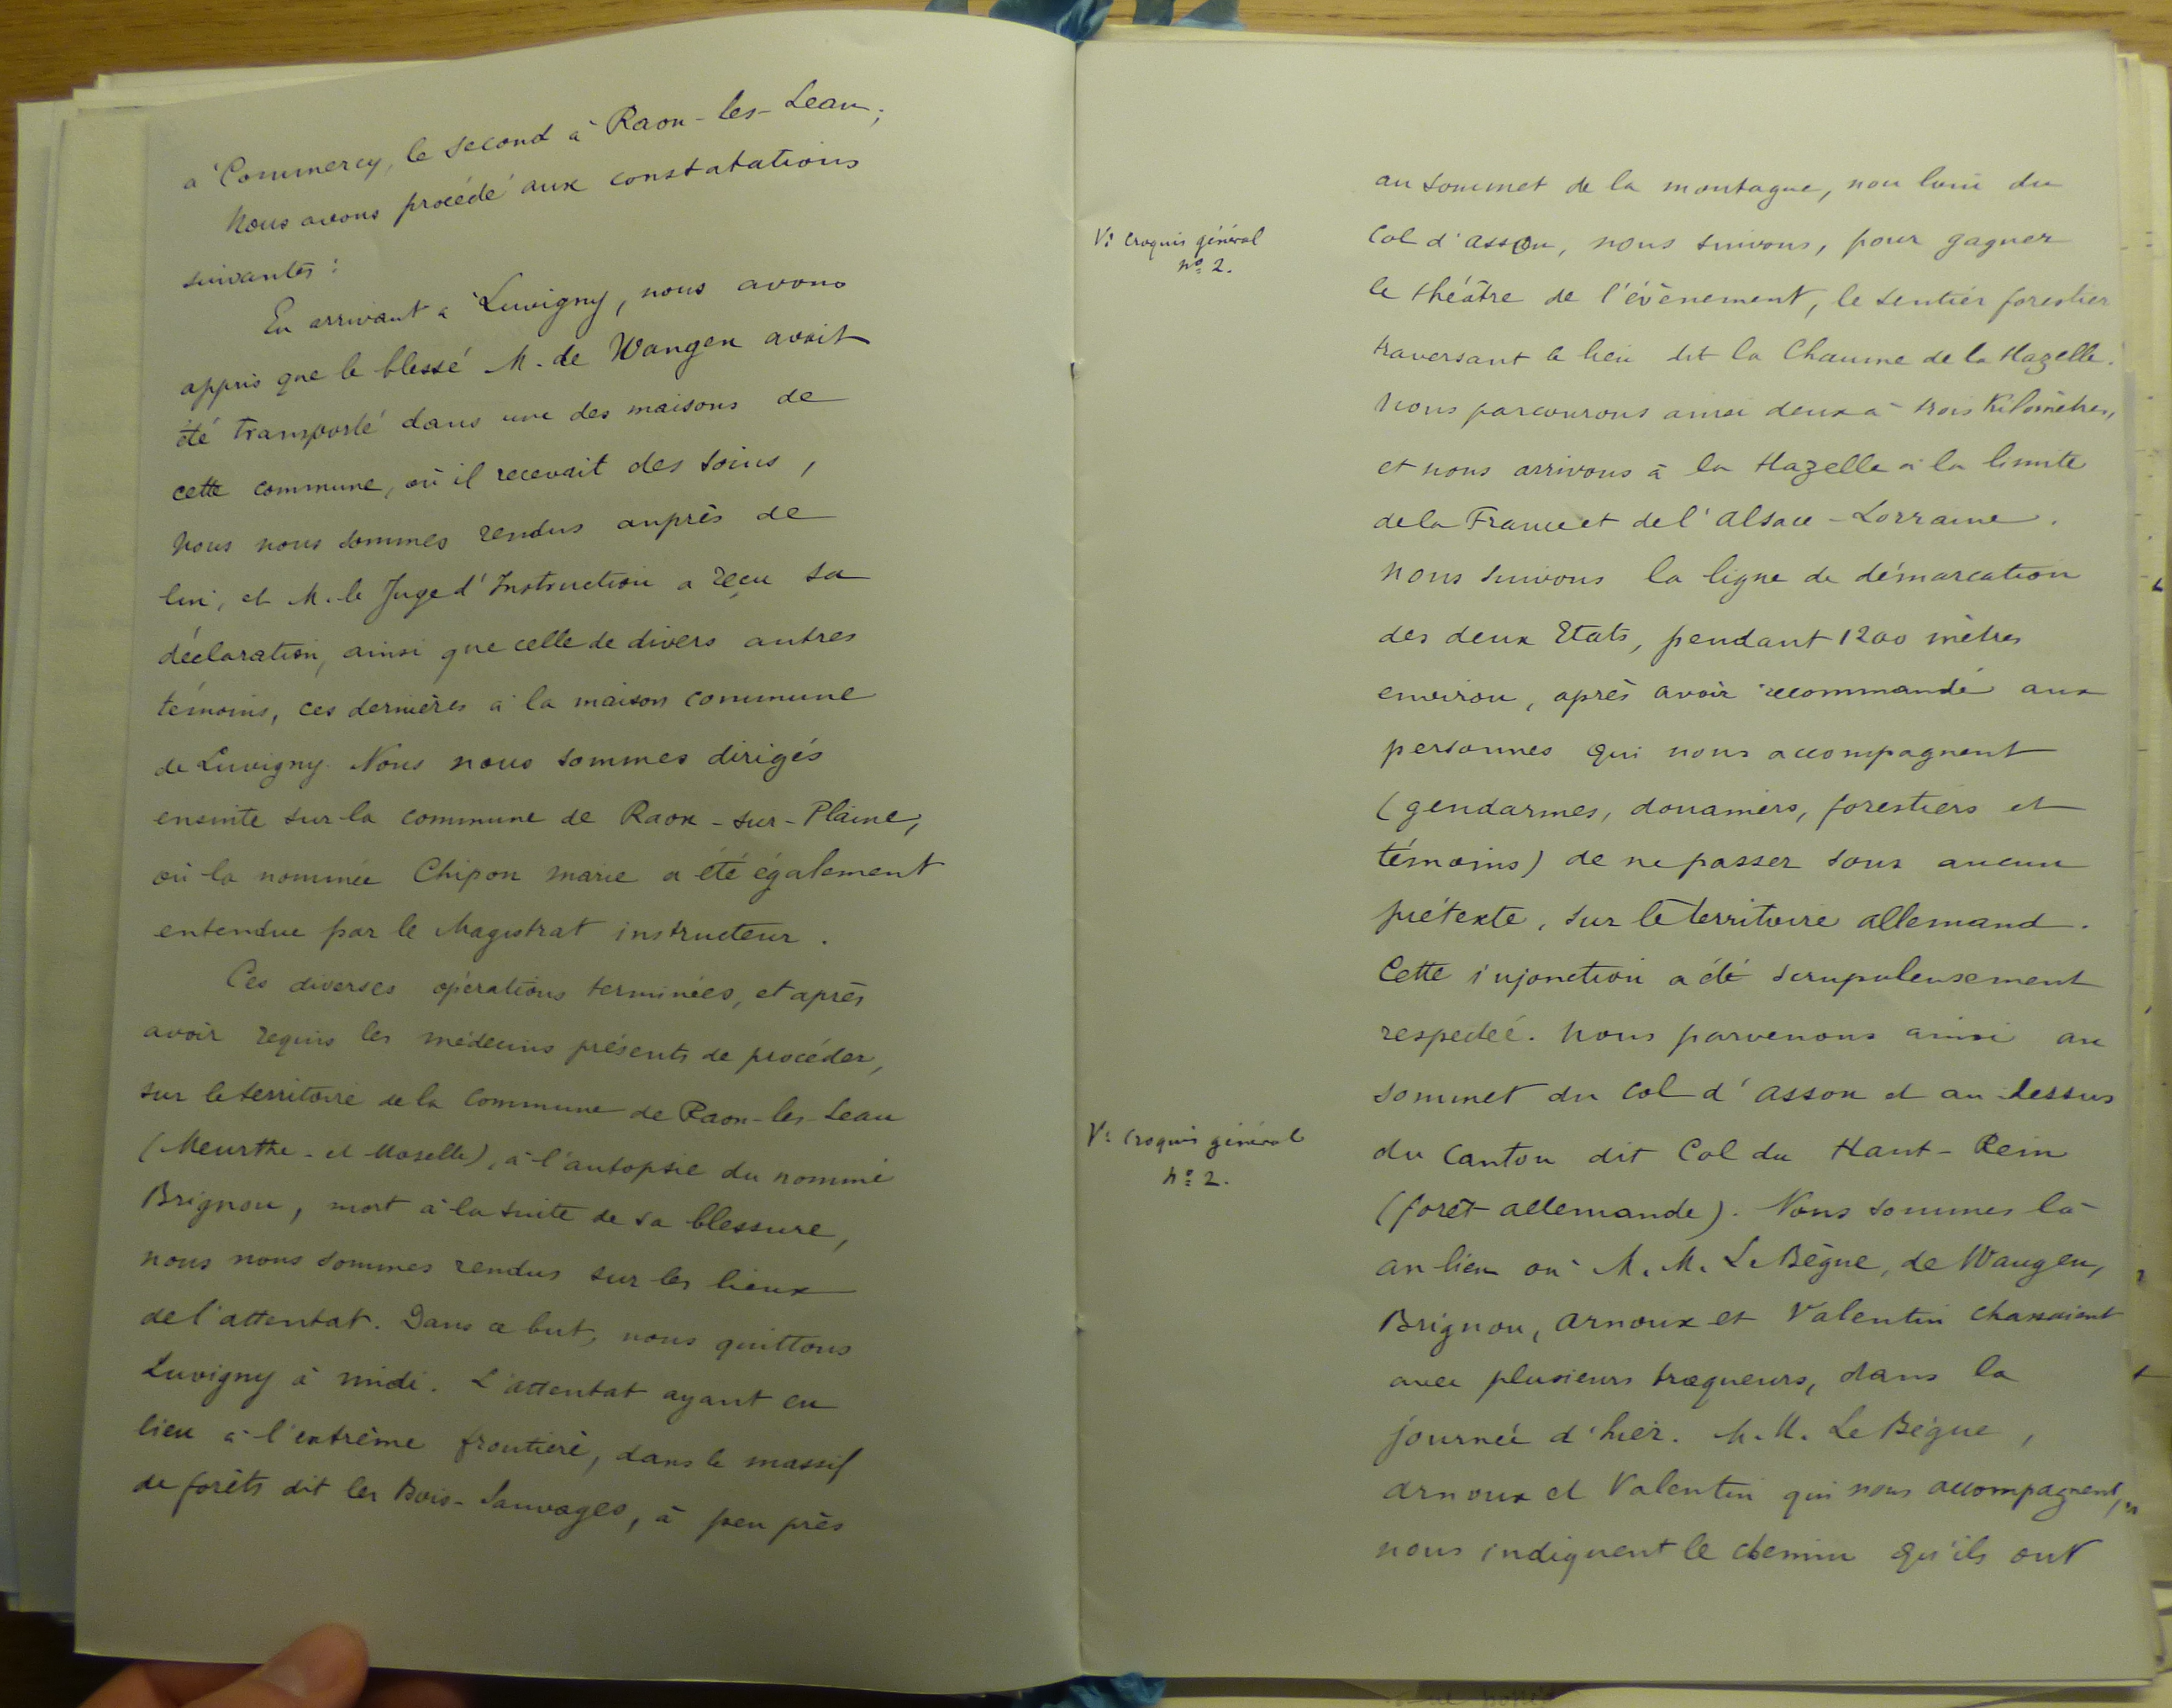 à Commercy, le second à Raon-les-Leau;
Nous avons procédé aux constatations
suivantes :
En arrivant à Luvigny, nous avons
appris que le blessé M. de Wangen avait
été transporté dans une des maisons de
cette commune, où il recevait des soins,
Nous nous sommes rendus auprès de
lui, et M. le Juge d'Instruction a reçu sa
déclaration, ainsi que celle de divers autres
témoins, ces dernières à la maison commune
de Luvigny. Nous nous sommes dirigés
ensuite sur la commune de Raon-sur-Plaine,
où la nommée Chipon Marie a été également
entendue par le Magistrat instructeur.
Ces diverses opérations terminées, et après
avoir requis les médecins présents de procéder,
sur le territoire de la Commune de Raon-les-Leau
(Meurthe-et-Moselle), à l'autopsie du nommé
Brignon, mort à la suite de sa blessure,
nous nous sommes rendus sur les lieux
de l'attentat. Dans ce but, nous quittons
Luvigny à midi. L'attentat ayant eu
lieu à l'extrême frontière, dans le massif
de forêts dit les Bois-Sauvages, à peu près
au sommet de la montagne, non loin du
V: Croquis général
nº 2.
Col d'asson, nous suivons, pour gagner
le théâtre de l'évènement, le sentier forestier
traversant le lieu dit la Chaume de la Hazelle.
Nous parcourons ainsi deux à trois Kilomètres,
et nous arrivons à la Hazelle à la limite
de la France et de l'Alsace-Lorraine.
Nous suivons la ligne de démarcation
des deux Etats, pendant 1200 mètres
environ, après avoir recommandé aux
personnes qui nous accompagnent
(gendarmes, douaniers, forestiers et
témoins) de ne passer sous aucun
prétexte, sur le territoire allemand.
Cette injonction a été scrupuleusement
respectée. Nous parvenons ainsi au
sommet du Col d'asson et au dessus
V: Croquis général
nº 2.
du Canton dit Col du Haut-Rein
(forêt allemande). Nous sommes là
au lieu où M. M. Le Bègue, de Wangen,
Brignon, Arnoux et Valentin chassaient
avec plusieurs traqueurs, dans la
journée d'hier. M. M. Le Bègue,
Arnoux et Valentin qui nous accompagnent,
nous indiquent le chemin qu'ils ont